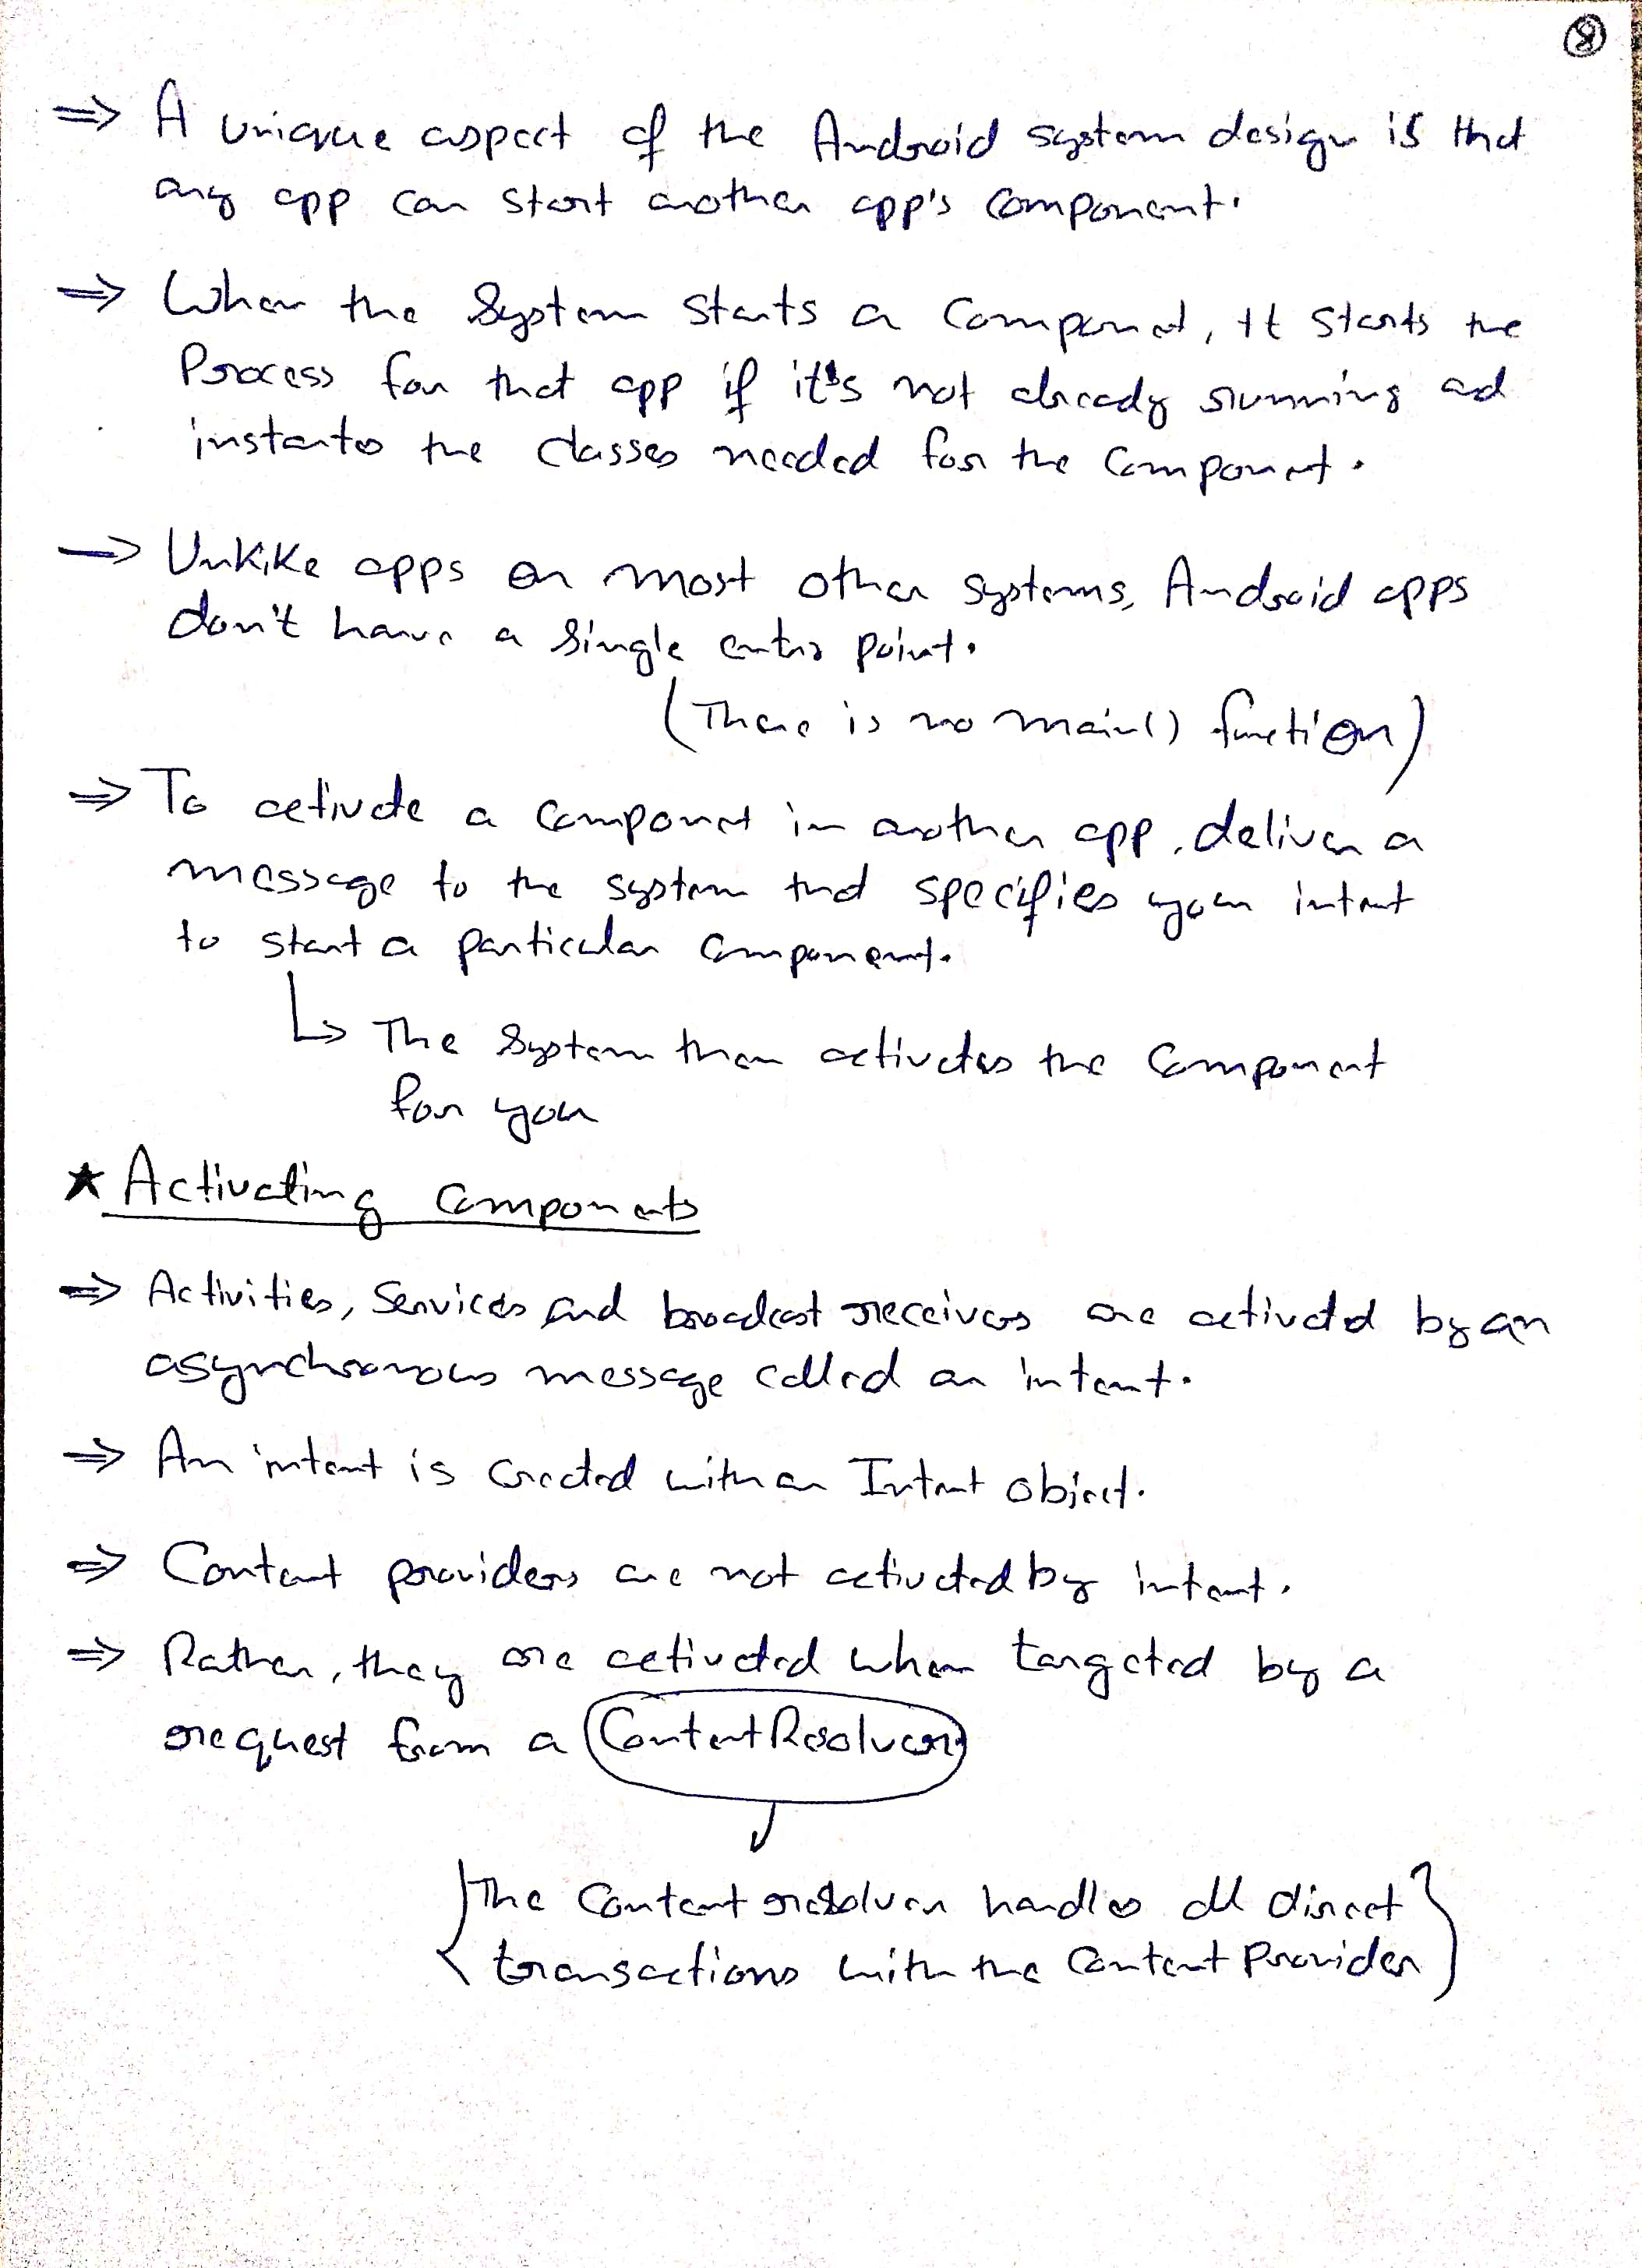 8
⇒ A unique aspect of the Android system design is that
any app can start another app's component.
⇒ When the System starts a component, It starts the
Process for that app if it's not already running and
instants the classes needed for the component.
→ Unlike apps on most other systems, Android apps
don't have a single entry point.
(There is no main() function)
⇒ To activate a component in another app, deliver a
message to the system that specifies your intent
to start a particular component.
↳ The System then activates the component
for you
★ Activating components
⇒ Activities, Services and broadcast receivers are activated by an
asynchronous message called an intent.
⇒ An intent is created with an Intent object.
⇒ Content providers are not activated by intent.
⇒ Rather, they are activated when targeted by a
request from a ContentResolver
The Content resolver handles all direct
transactions with the Content Provider